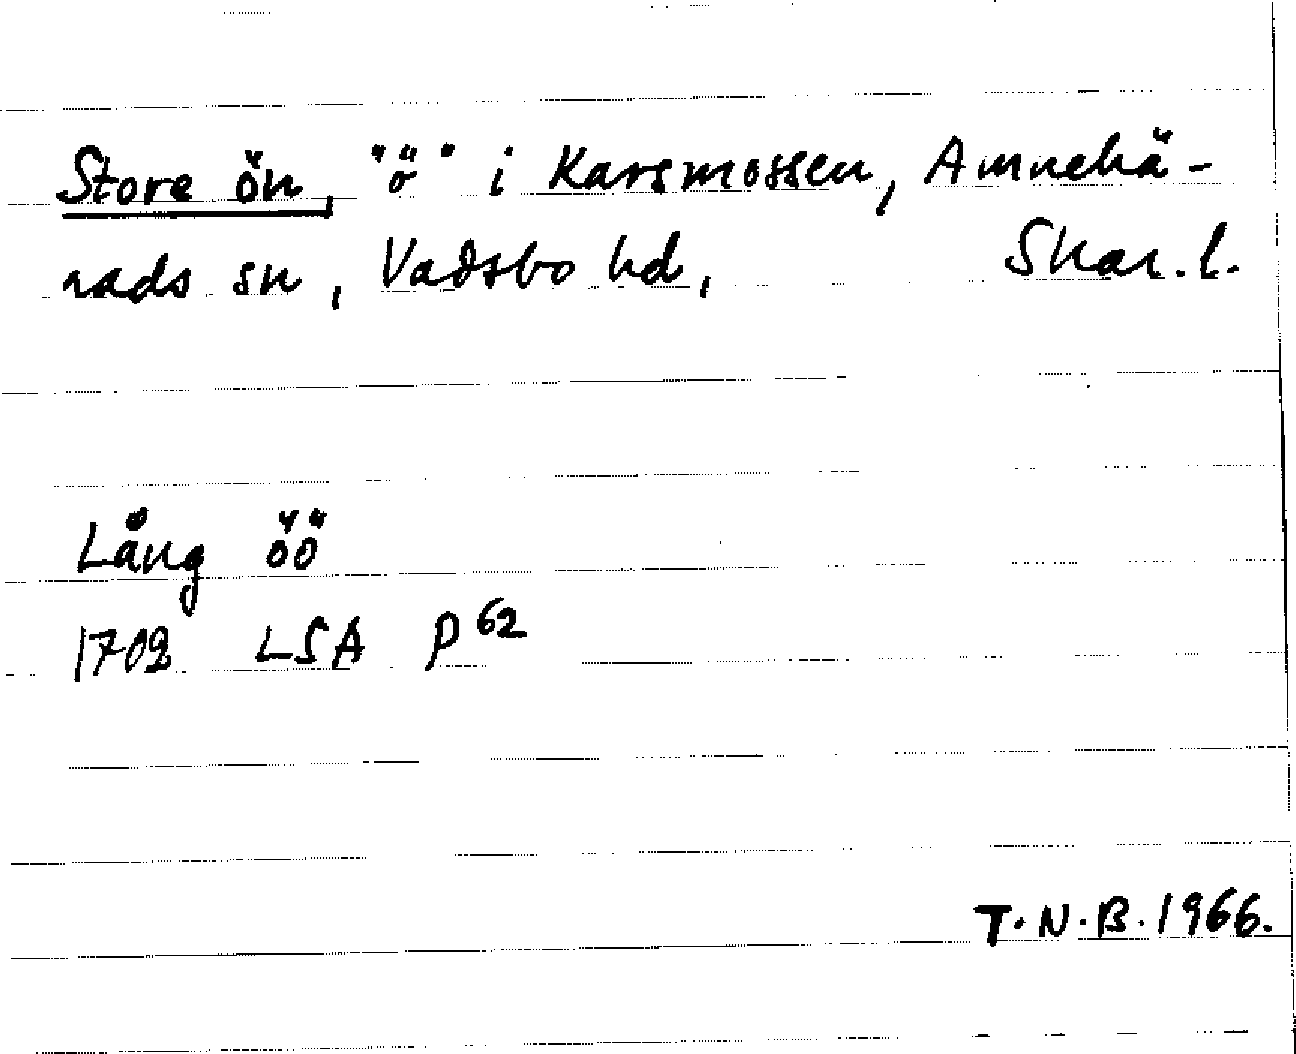 Store ön, "ö" i Karsmossen, Amnehä-
rads sn, Vadsbo hd, Skar. l.
Lång öö
1702 LSA P 62
T.N.B. 1966.